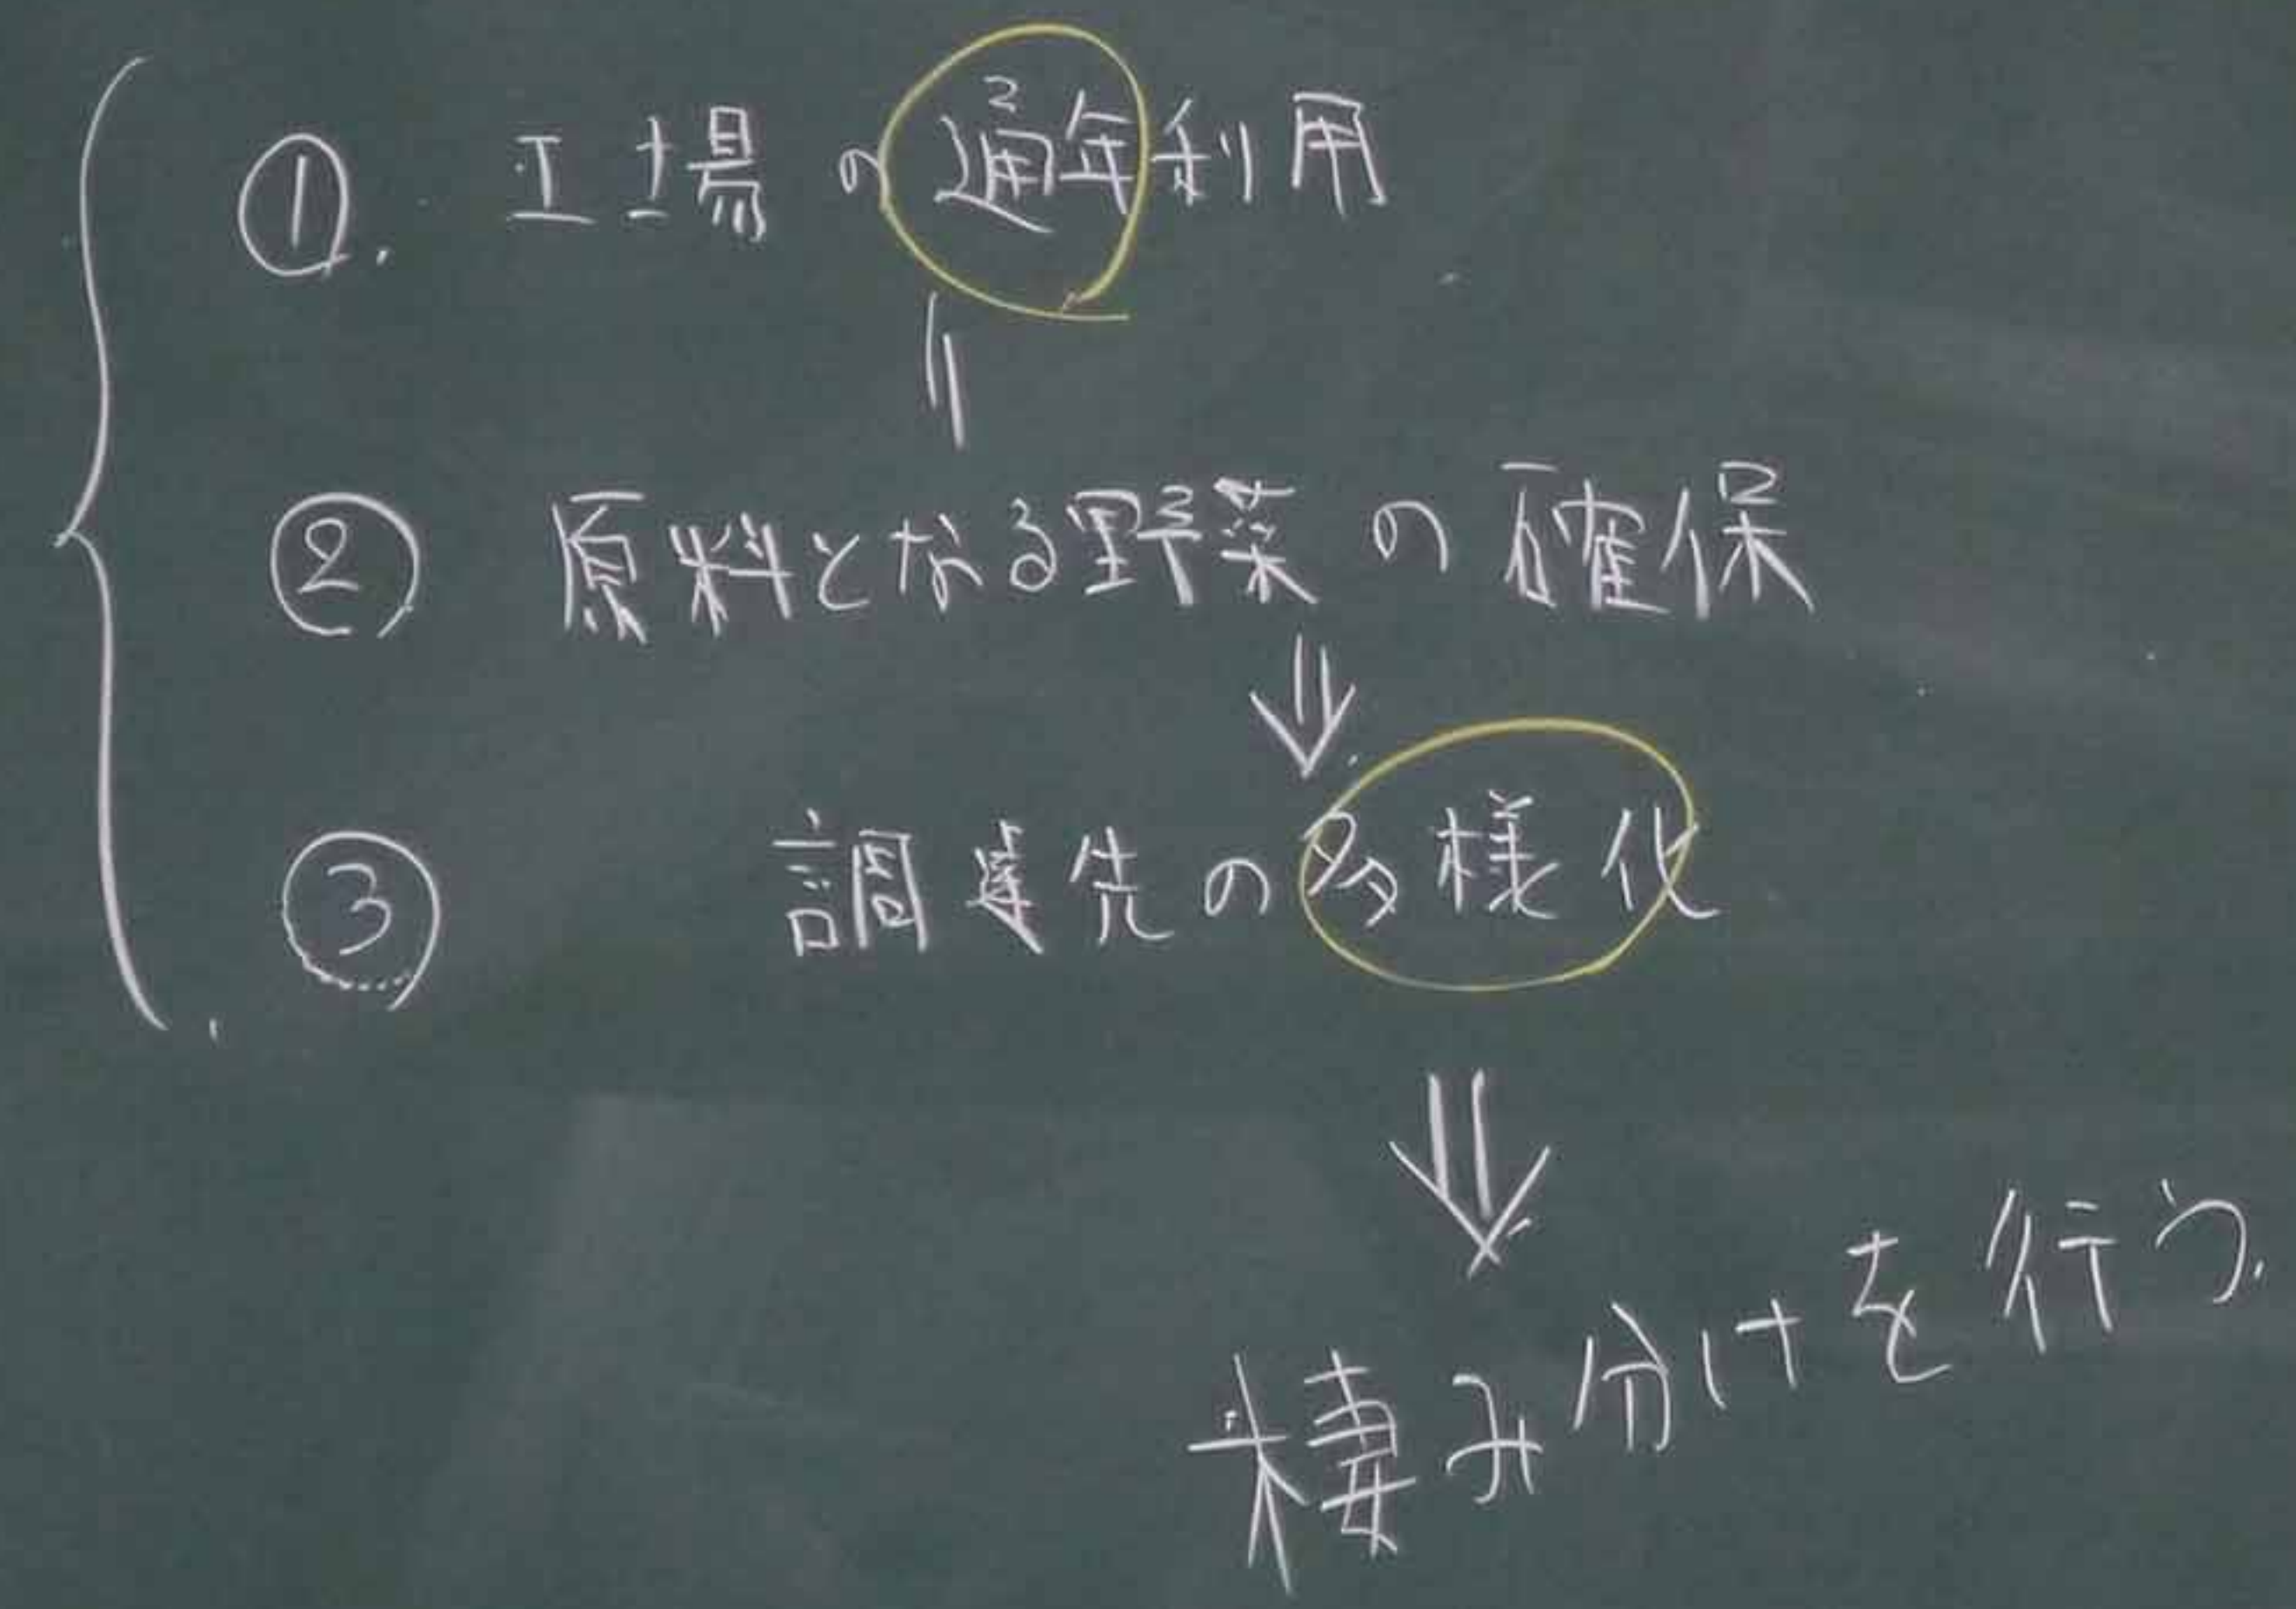 ①. 工場の通年利用
||
② 原料となる野菜の確保
⇓
③ 調達先の多様化
⇓
棲み分けを行う.